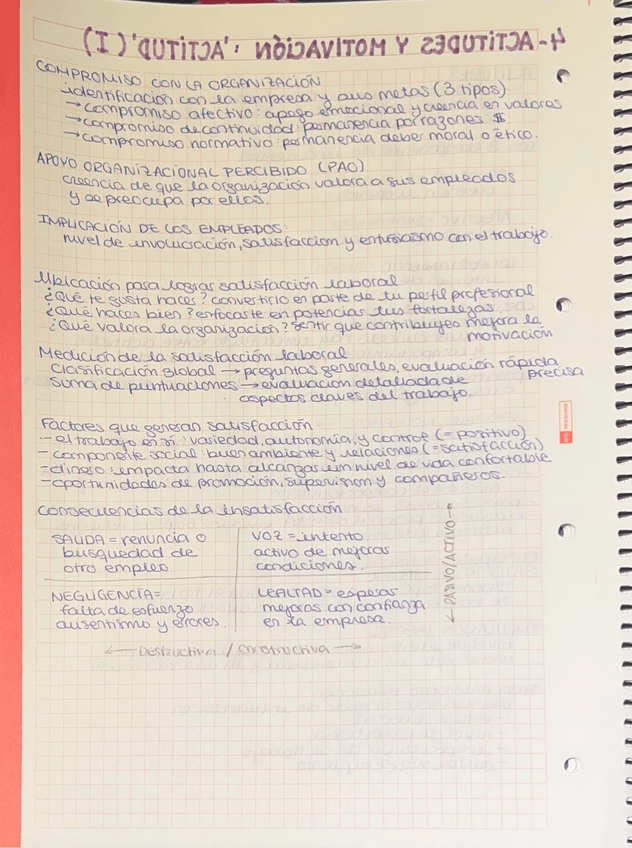 4- ACTITUDES Y MOTIVACIÓN: 'ACTITUD' (I)
COMPROMISO CON LA ORGANIZACIÓN
identificación con la empresa y sus metas (3 tipos)
→ compromiso afectivo: apego emocional y creencia en valores
→ compromiso de continuidad: permanencia por razones $.
→ compromiso normativo: permanencia deber moral o ético.
APOYO ORGANIZACIONAL PERCIBIDO (PAO)
creencia de que la organización valora a sus empleados
y se preocupa por ellos.
IMPLICACIÓN DE LOS EMPLEADOS:
nivel de involucración, satisfacción y entusiasmo con el trabajo.
Ubicación para lograr satisfacción laboral
¿Qué te gusta hacer? convertirlo en parte de tu perfil profesional
¿Qué haces bien? enfocarte en potenciar tus fortalezas
¿Qué valora la organización? sentir que contribuyes mejora la
motivación
Medición de la satisfacción laboral
Clasificación global → preguntas generales, evaluación rápida
precisa
Suma de puntuaciones → evaluación detallada de
aspectos claves del trabajo.
Factores que generan satisfacción
- el trabajo en sí: variedad, autonomía, y control (= positivo)
- componente social: buen ambiente y relaciones (= satisfacción)
- dinero: impacta hasta alcanzar un nivel de vida confortable
- oportunidades de promoción, supervision y compañeros.
Consecuencias de la insatisfacción
SALIDA = renuncia o
busquedad de
otro empleo
VOZ = intento
activo de mejorar
condiciones.
NEGLIGENCIA =
falta de esfuerzo
ausentismo y errores.
LEALTAD = esperar
mejoras con confianza
en la empresa.
← PASIVO/ACTIVO →
← Destructiva / constructiva →